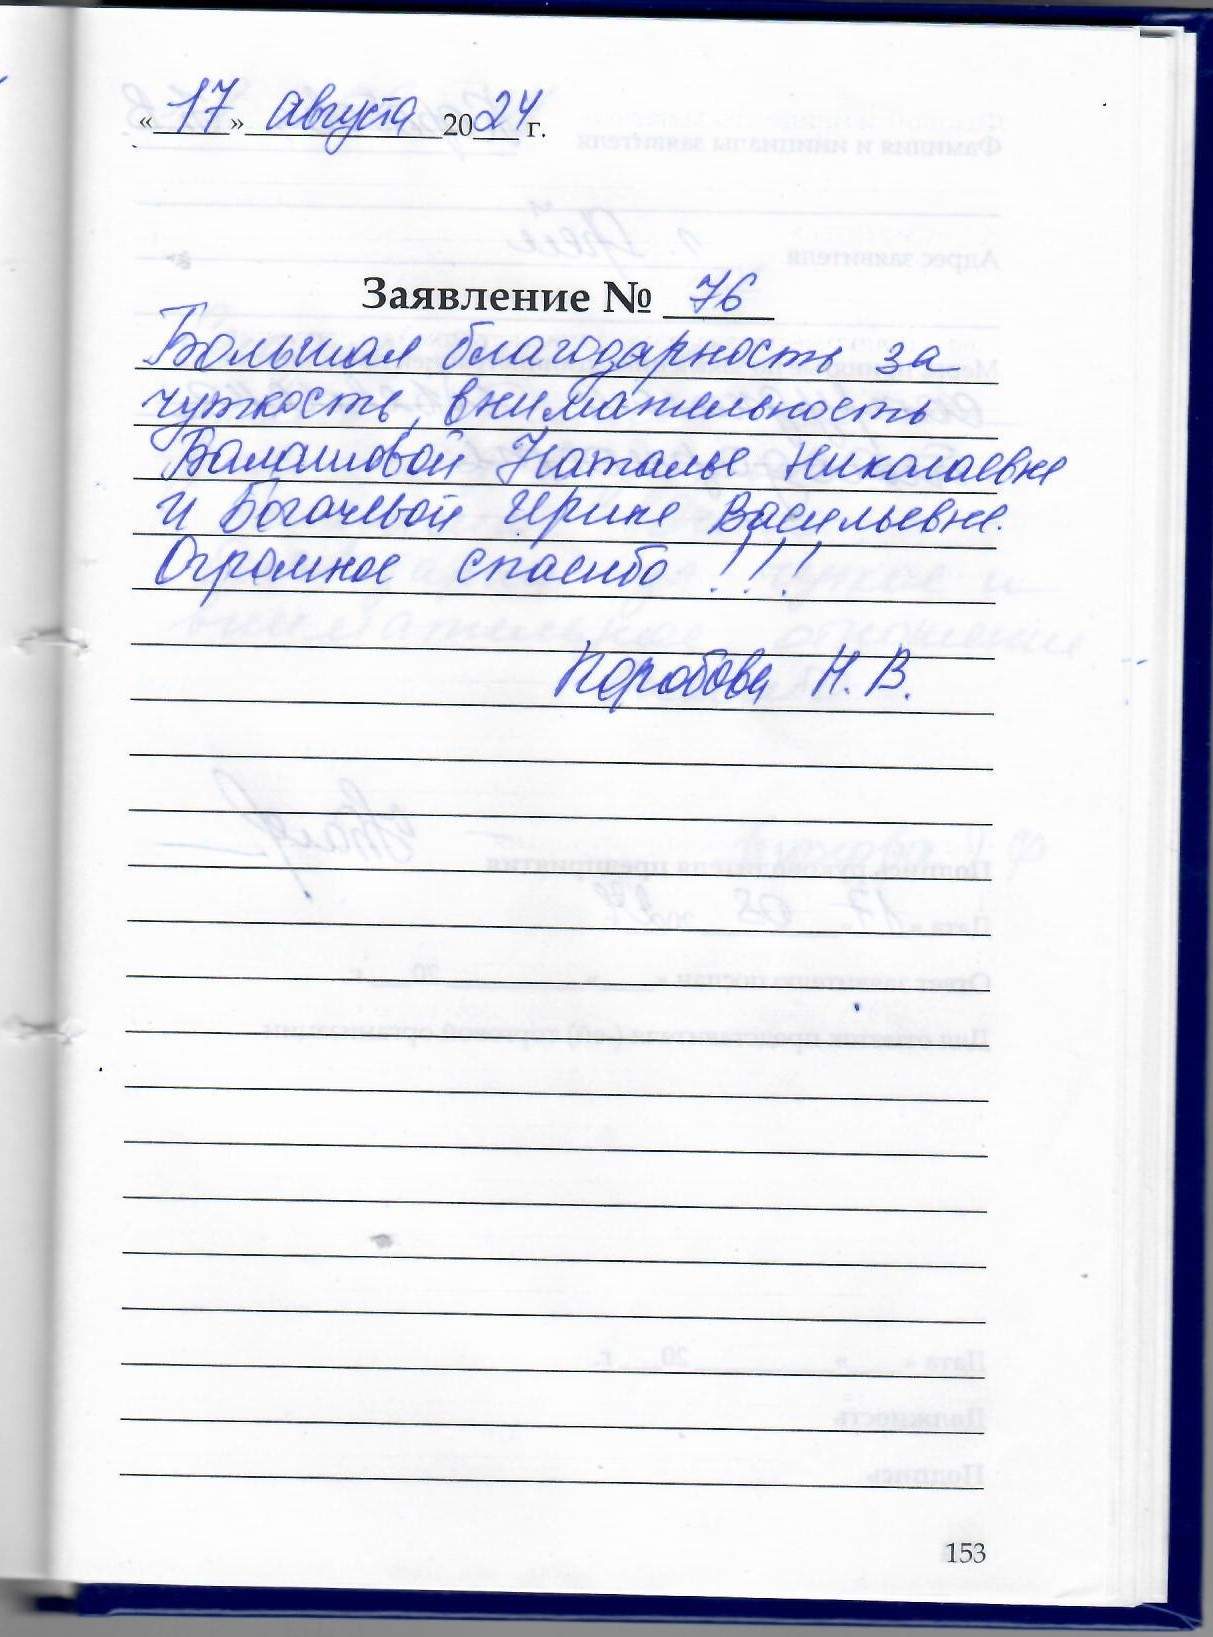 «17» августа 2024 г.
Заявление № 76
Большая благодарность за
чуткость, внимательность
Балашовой Наталье Николаевне
и Богачевой Ирине Васильевне.
Огромное спасибо!!!
Коробова Н. В.
153